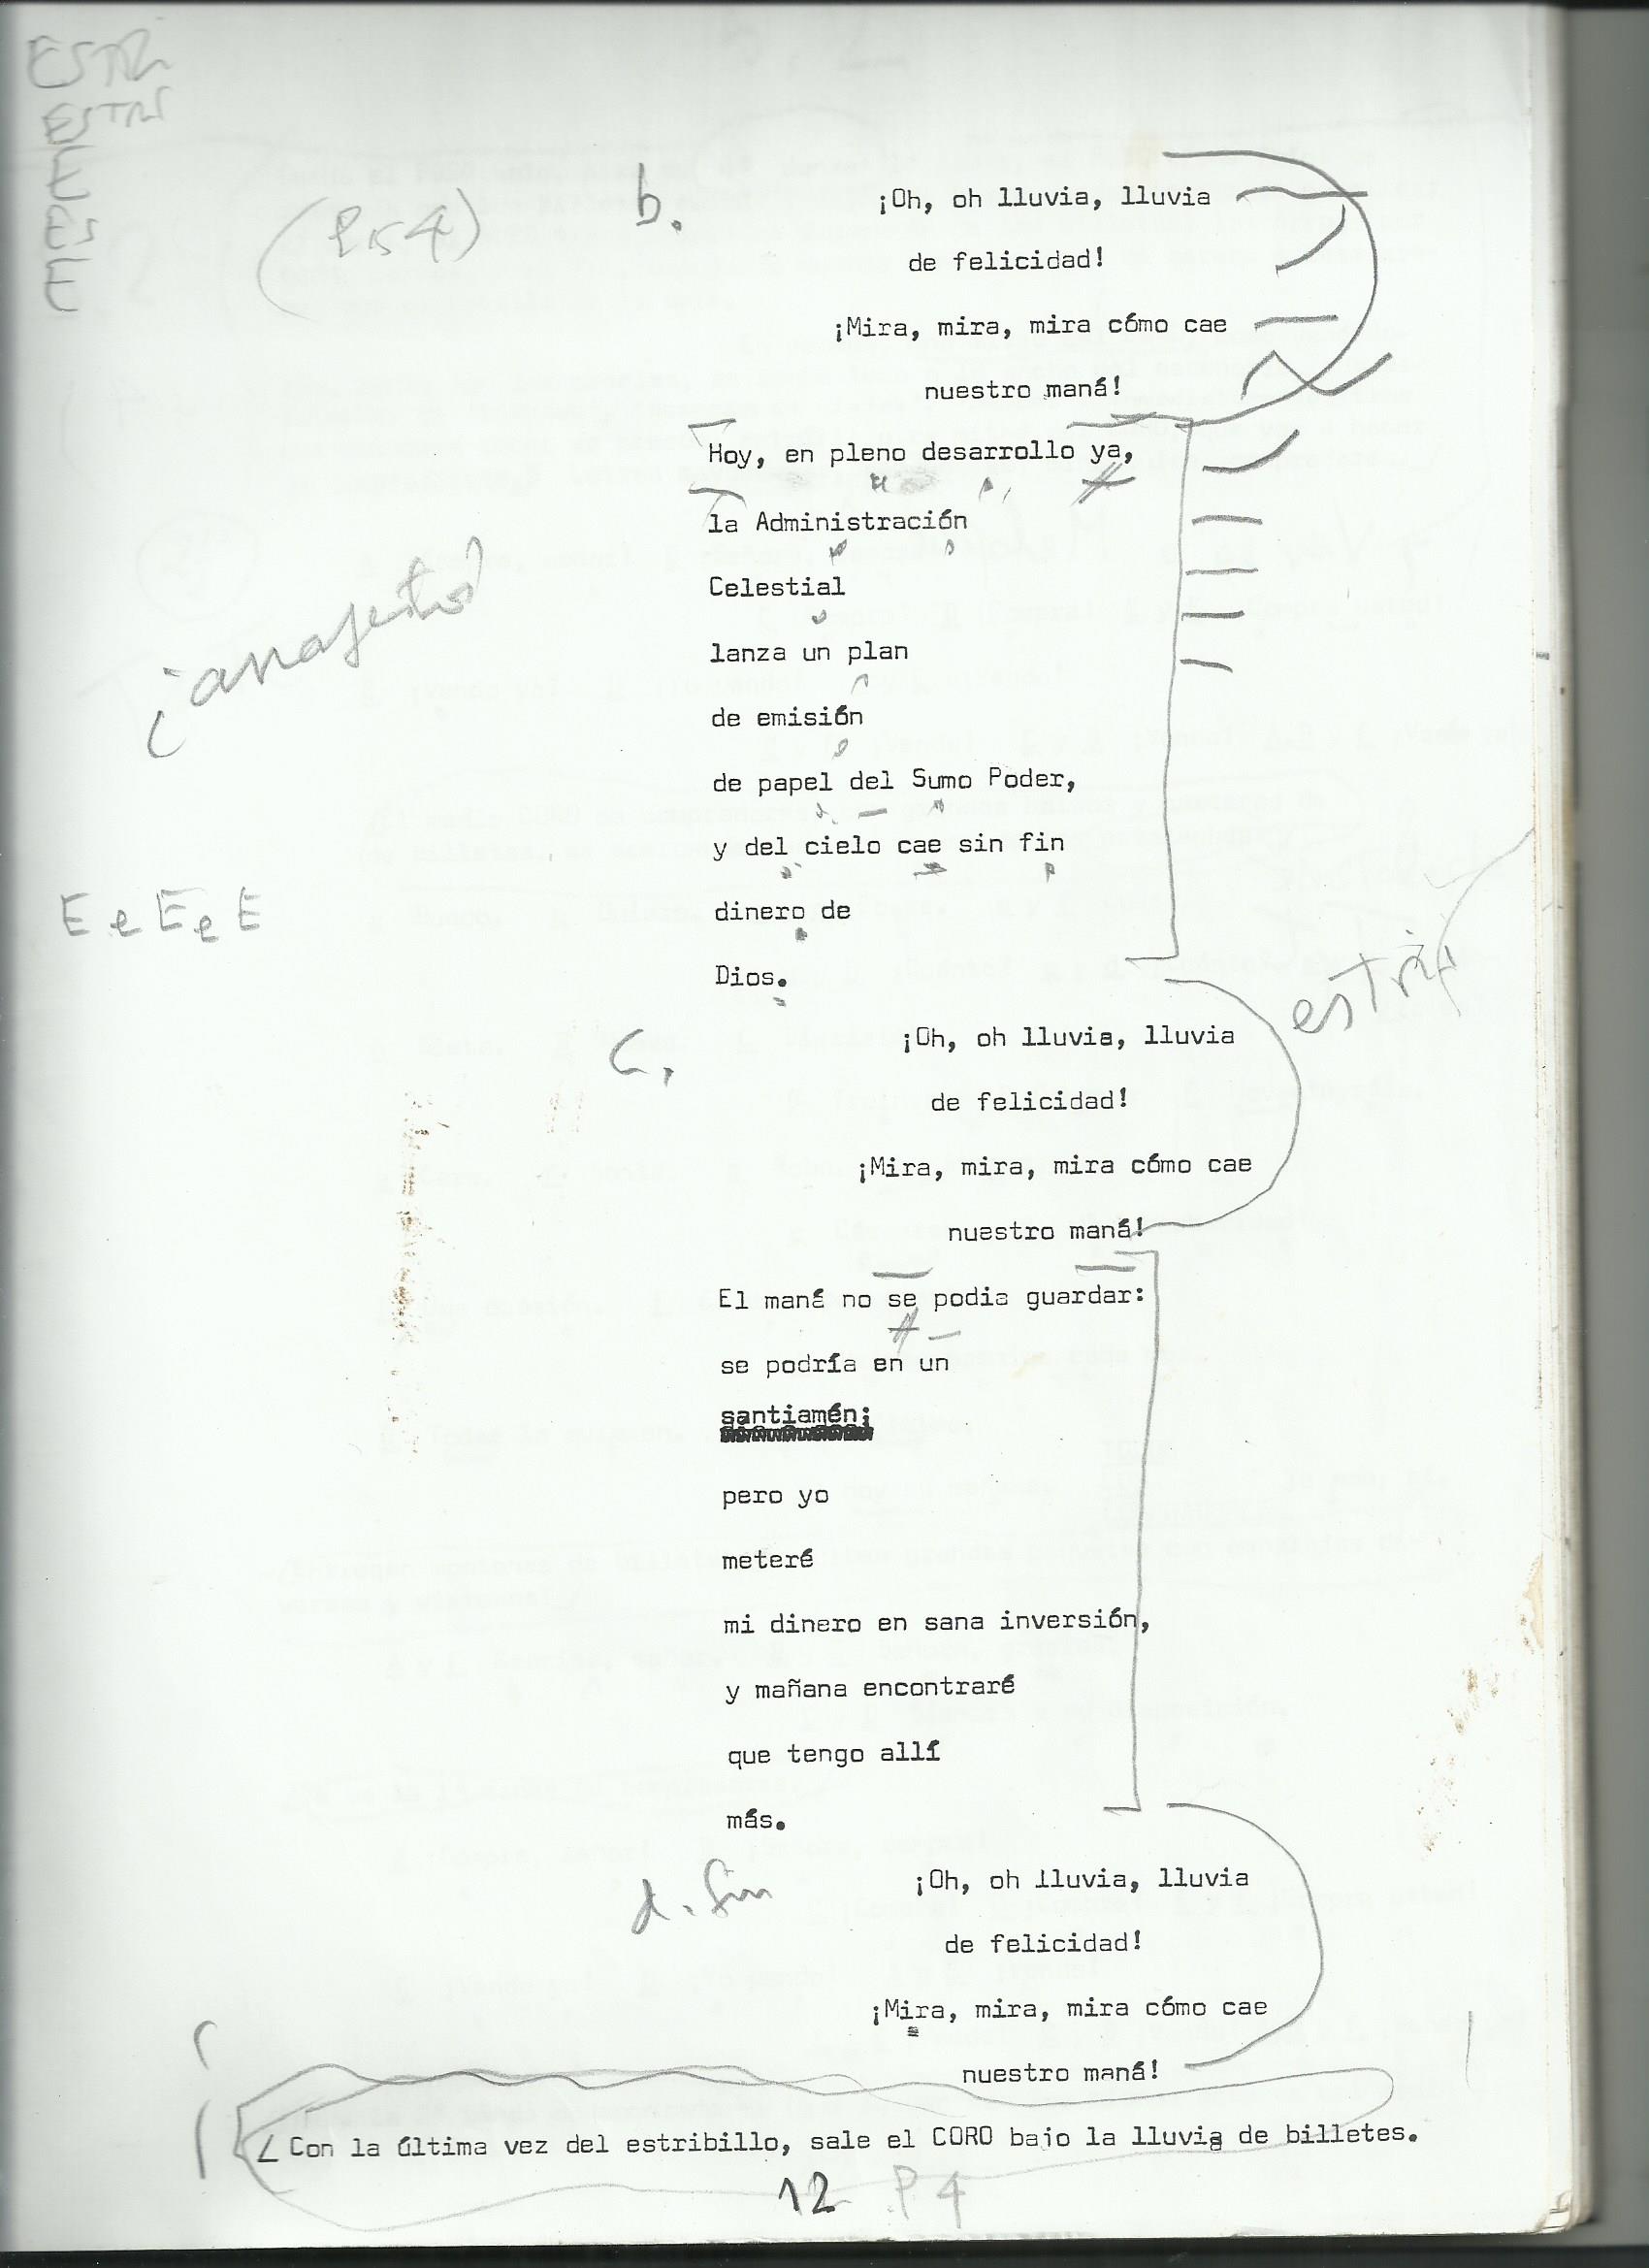 ESTR
ESTR
E
ES
E
b.
¡Oh, oh lluvia, lluvia
de felicidad!
¡Mira, mira, mira cómo cae
nuestro maná!
Hoy, en pleno desarrollo ya,
la Administración
Celestial
lanza un plan
de emisión
de papel del Sumo Poder,
y del cielo cae sin fin
E e E e E
dinero de
Dios.
estrip
c.
¡Oh, oh lluvia, lluvia
de felicidad!
¡Mira, mira, mira cómo cae
nuestro maná!
El maná no se podia guardar:
se podría en un
santiamén;
pero yo
meteré
mi dinero en sana inversión,
y mañana encontraré
que tengo allí
más.
d. fin
¡Oh, oh lluvia, lluvia
de felicidad!
¡Mira, mira, mira cómo cae
nuestro maná!
Con la última vez del estribillo, sale el CORO bajo la lluvia de billetes.
12 P4